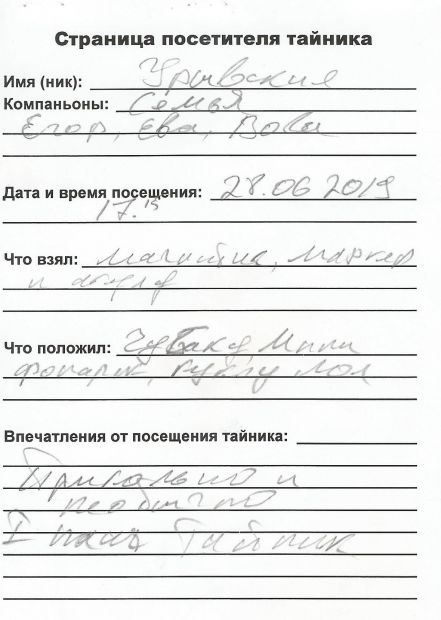 Страница посетителя тайника
Имя (ник): Урывские
Компаньоны: Семья
Егор, Ева, Вова
Дата и время посещения: 28.06 2019
17.15
Что взял: магнитик, маркер
и акулу
Что положил: Чубаку мини
фонарик, куклу Лол
Впечатления от посещения тайника:
Прикально и
необычно
I наш Тайник